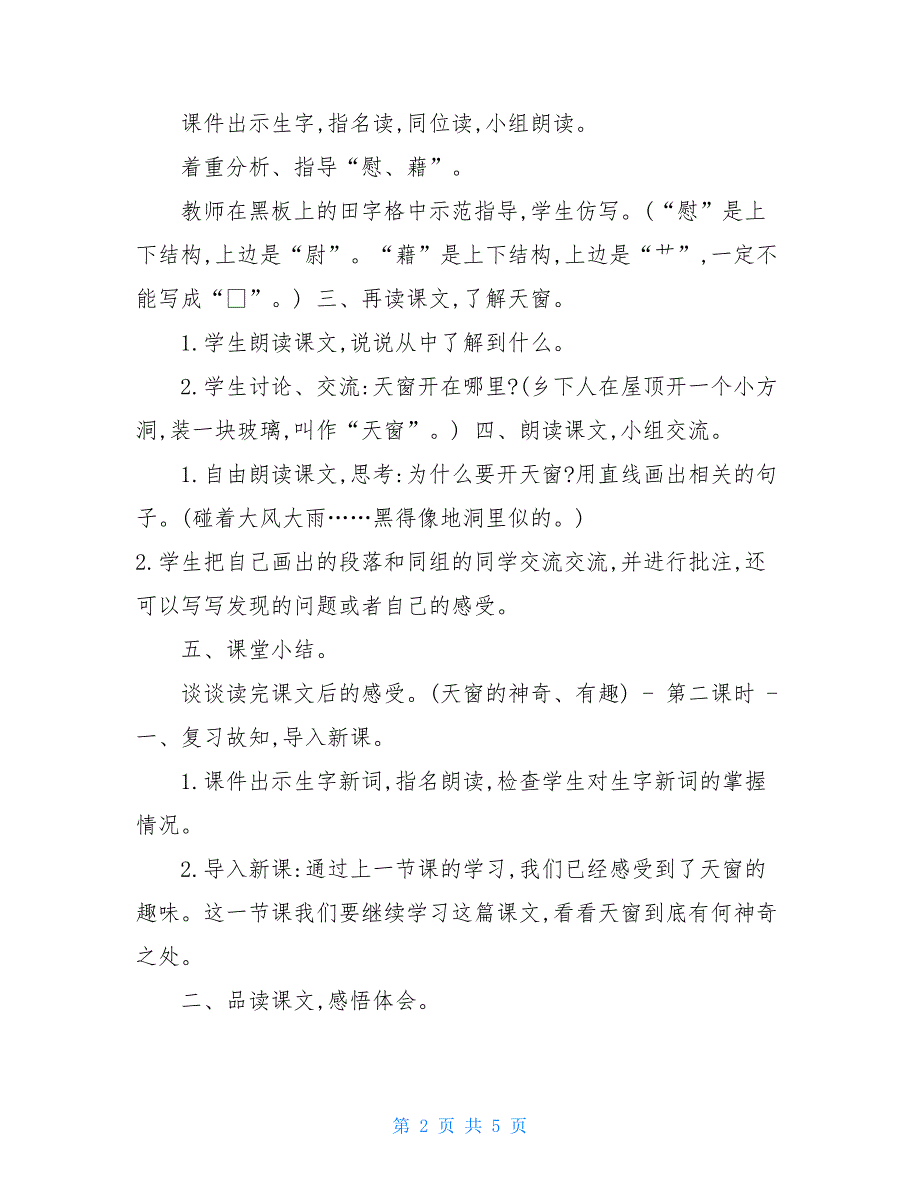 课件出示生字,指名读,同位读,小组朗读。
着重分析、指导“慰、藉”。
教师在黑板上的田字格中示范指导,学生仿写。(“慰”是上
下结构,上边是“尉”。“藉”是上下结构,上边是“艹”,一定不
能写成“□”。) 三、再读课文,了解天窗。
1.学生朗读课文,说说从中了解到什么。
2.学生讨论、交流:天窗开在哪里?(乡下人在屋顶开一个小方
洞,装一块玻璃,叫作“天窗”。) 四、朗读课文,小组交流。
1.自由朗读课文,思考:为什么要开天窗?用直线画出相关的句
子。(碰着大风大雨……黑得像地洞里似的。)
2.学生把自己画出的段落和同组的同学交流交流,并进行批注,还
可以写写发现的问题或者自己的感受。
五、课堂小结。
谈谈读完课文后的感受。(天窗的神奇、有趣) - 第二课时 -
一、复习故知,导入新课。
1.课件出示生字新词,指名朗读,检查学生对生字新词的掌握
情况。
2.导入新课:通过上一节课的学习,我们已经感受到了天窗的
趣味。这一节课我们要继续学习这篇课文,看看天窗到底有何神奇
之处。
二、品读课文,感悟体会。
第 2 页 共 5 页